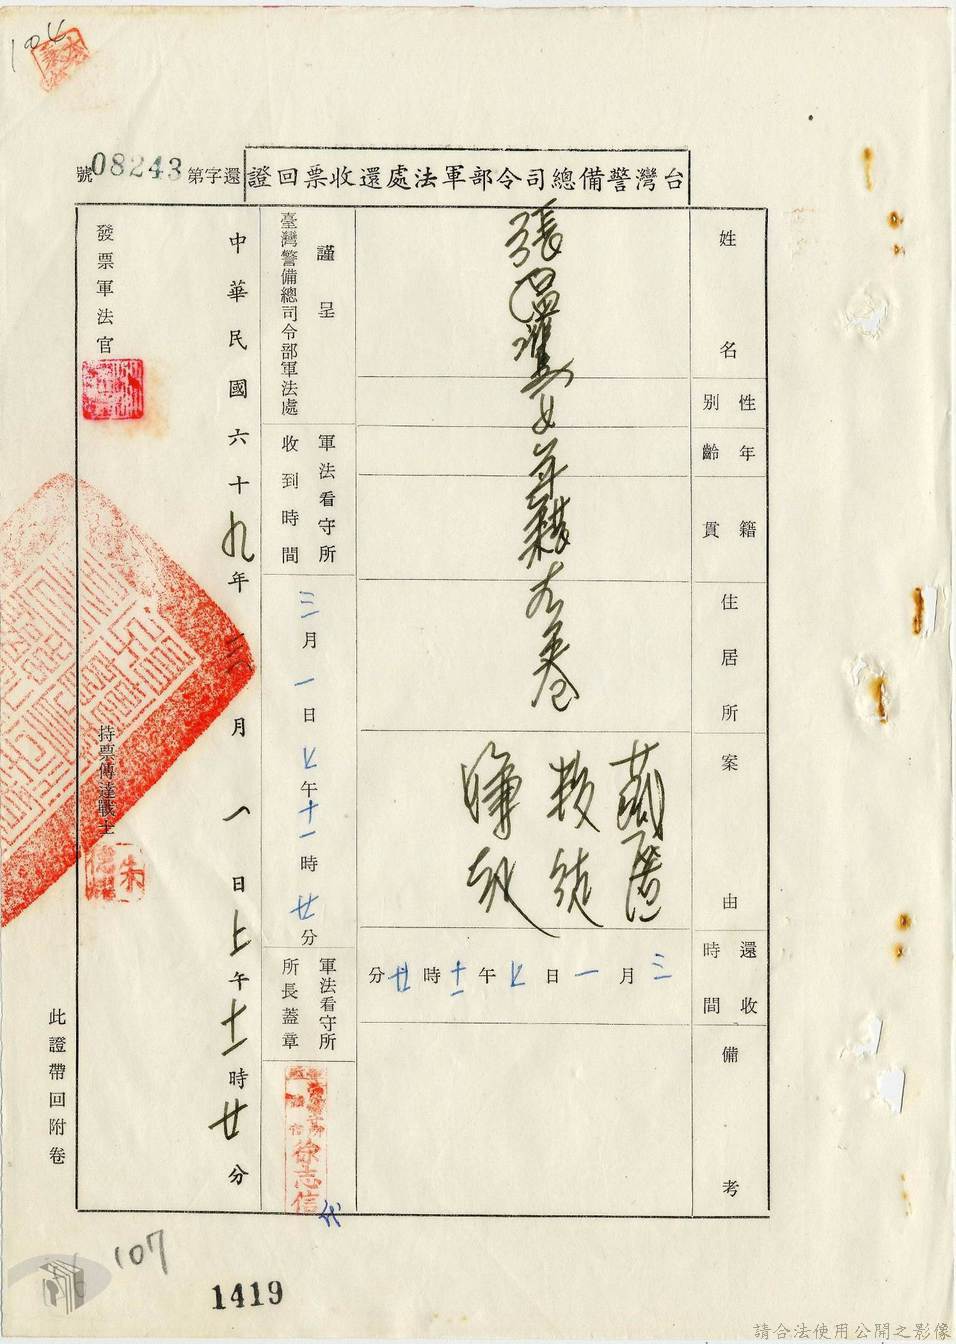 台灣警備總司令部軍法處還收票回證
還字第08243號
姓名
張溫鷹
性別
女
年齡
年籍在卷
籍貫
住居所
案由
藏匿
叛徒
還收時間
三月一日上午十一時廿分
備考
謹呈
臺灣警備總司令部軍法處
軍法看守所
收到時間
三月一日上午十一時廿分
軍法看守所
所長蓋章
徐志信
代
中華民國六十九年三月一日上午十一時廿分
發票軍法官
持票傳達戰士
朱
此證帶回附卷
104
107
1419
請合法使用公開之影像